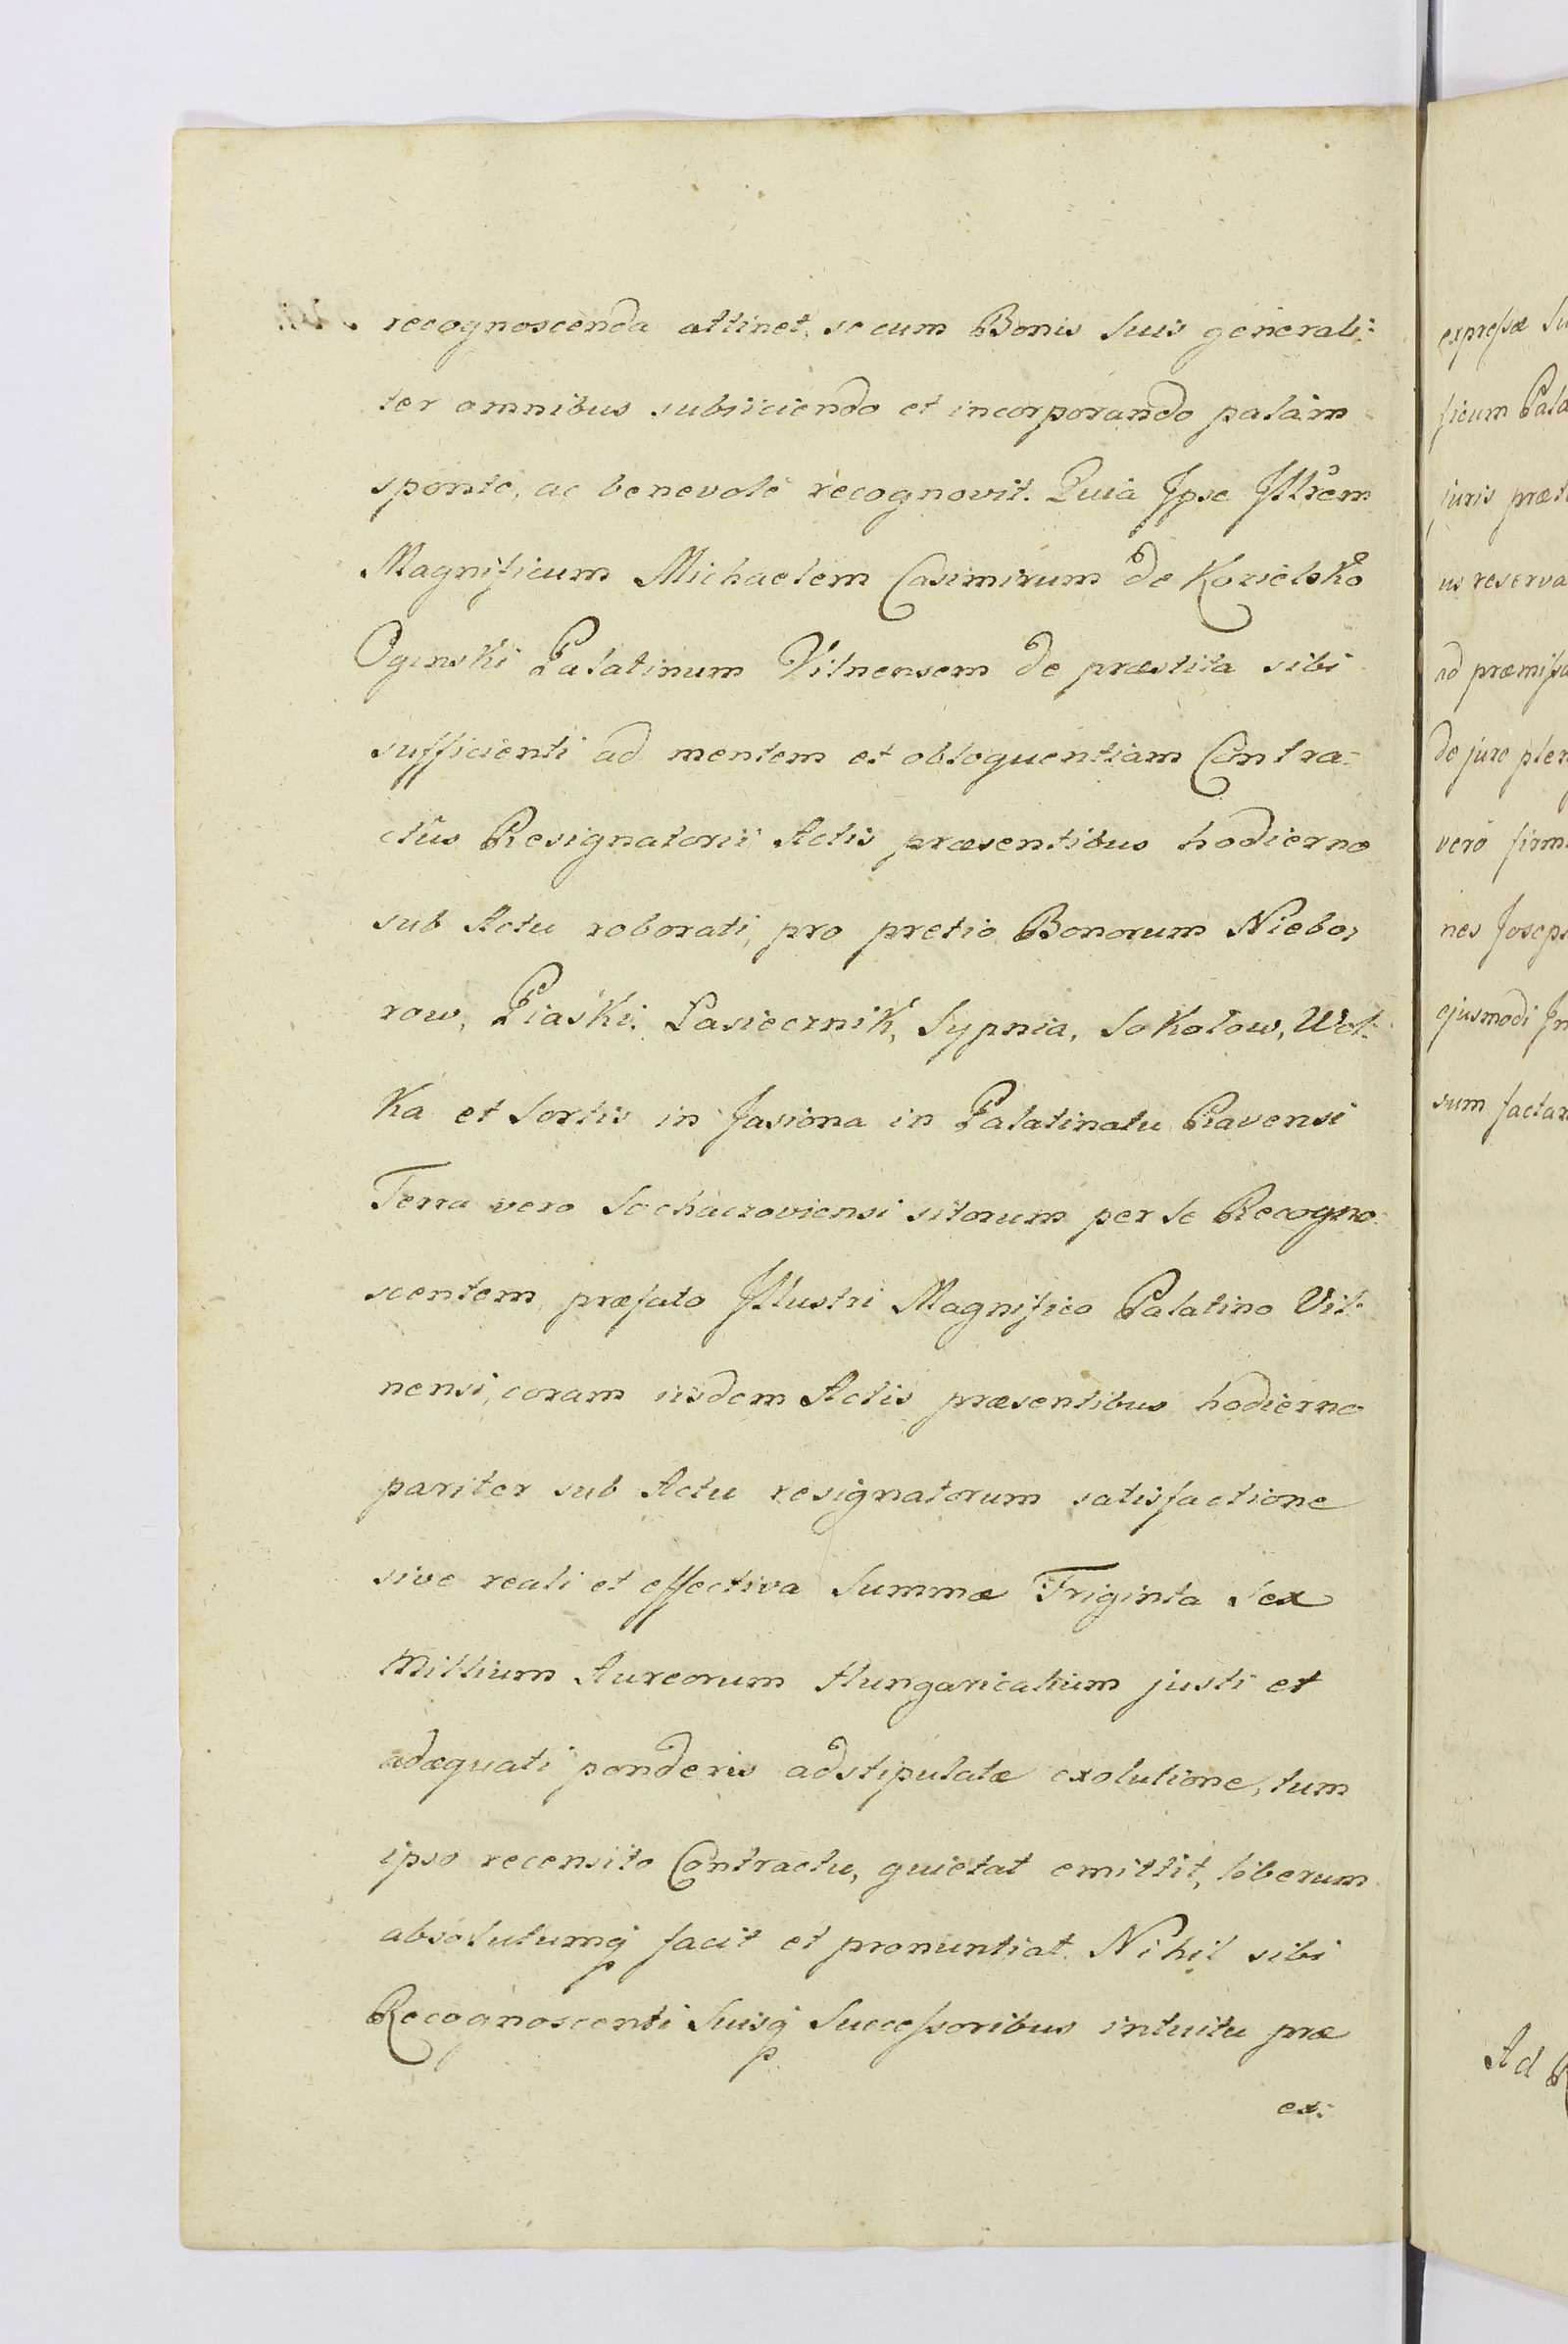 recognoscenda attinet, se cum Bonis Suis generali=
ter omnibus subiiciendo et incorporando palàm
sponte, ac benevolè recognovit. Quia Ipse Illrem
Magnificum Michaelem Casimirum de Kozielsko
Oginski Palatinum Vilnensem de præstita sibi
sufficienti ad mentem et obloquentiam Contra=
ctûs Resignatorii Actis præsentibus hodierno
sub Actu roborati, pro pretio Bonorum Niebo,
row, Piaski, Pasiecznik, Sypnia, Sokołow, Wol=
Ka et Sortis in Jasiona in Palatinatu Ravensi
Terra vero Sochaczoviensi sitorum per Se Recogno=
scentem, præfato Illustri Magnifico Palatino Vil=
nensi, coram iisdem Actis præsentibus hodierno
pariter sub Actu resignatorum satisfactione
sive reali et effectiva Summæ Triginta Sex
Millium Aureorum Hungaricalium justi et
adæquati ponderis adstipulatæ exolutione, tum
ipso recensito Contractu, quietat emittit, liberum
absolutumq facit et pronuntiat. Nihil sibi
Recognoscenti Suisq Successoribus intuitu præ
ex:
expressæ Su
ficum Pala
juris præt
us reserva
ad præmissa
de jure plen
verò firm
nes Joseph
ejusmodi In
sum factam
Ad